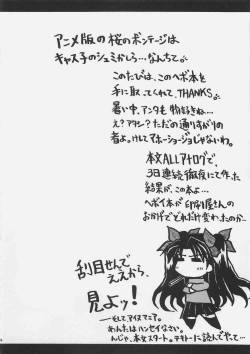 アニメ版の桜のボンテージは
キャス子のシュミかしら…なんちて。
このたびは、このヘボ本を
手に取ってくれて、THANKS。
暑い中、アンタも物好きね…
え?アタシ?ただの通りすがりの
者よ。けしてアホーショージョじゃないわ。
本文ALLアナログで、
3日連続徹夜にて作った
結果が、この本よ…
ヘボイ本が印刷屋さんの
おかげでどれだけ変わったのか…
刮目せんで
ええから、
見よッ!
―そしてアイヌマニア。
あんたはハンセイなさい。
んじゃ、本文スタート。テキトーに読んでやって…